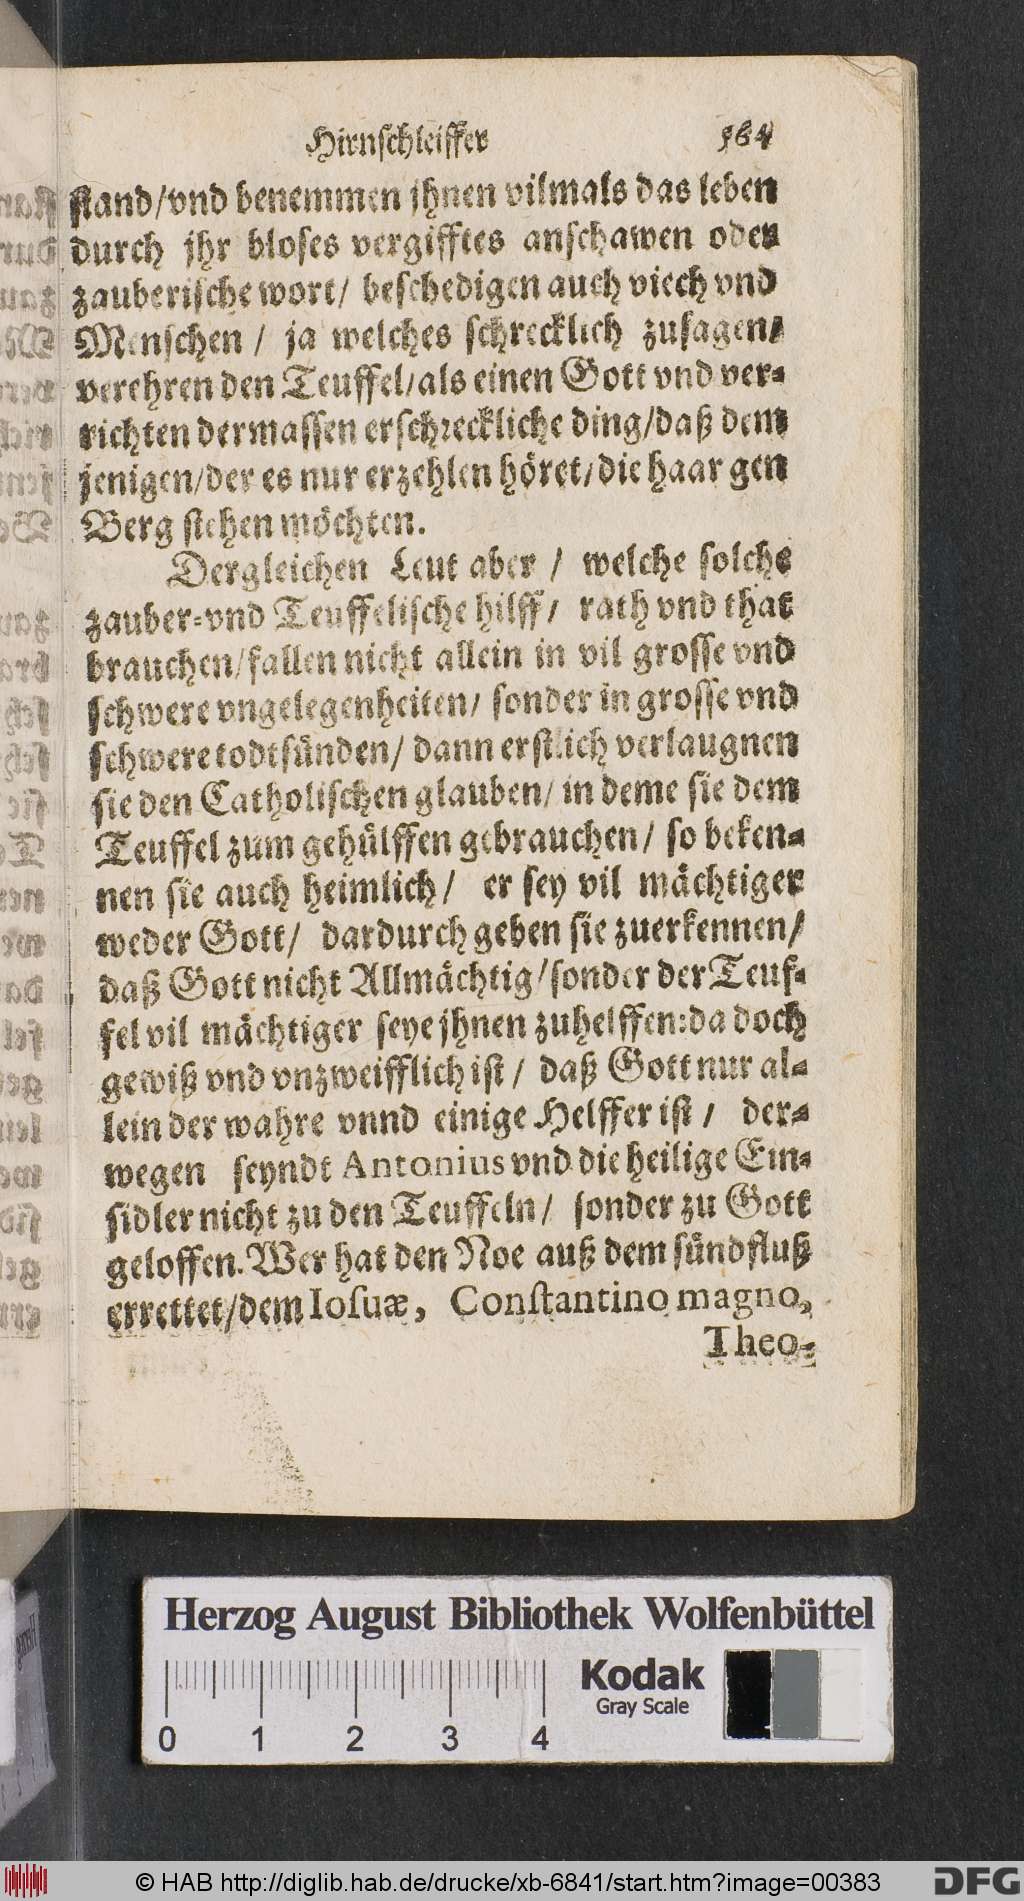 Hirnschleiffer 364
stand/vnd benemmen jhnen vilmals das leben
durch jhr bloses vergifftes anschawen oder
zauberische wort/ beschedigen auch viech vnd
Menschen / ja welches schrecklich zusagen/
verehren den Teuffel/als einen Gott vnd ver-
richten dermassen erschreckliche ding/daß dem
jenigen/der es nur erzehlen höret/die haar gen
Berg stehen möchten.
Dergleichen Leut aber / welche solche
zauber-vnd Teuffelische hilff/ rath vnd that
brauchen/fallen nicht allein in vil grosse vnd
schwere vngelegenheiten/ sonder in grosse vnd
schwere todtsünden/ dann erstlich verlaugnen
sie den Catholischen glauben/ in deme sie dem
Teuffel zum gehülffen gebrauchen/ so beken-
nen sie auch heimlich/ er sey vil mächtiger
weder Gott/ dardurch geben sie zuerkennen/
daß Gott nicht Allmächtig/sonder der Teuf-
fel vil mächtiger seye jhnen zuhelffen:da doch
gewiß vnd vnzweifflich ist / daß Gott nur al-
lein der wahre vnnd einige Helffer ist / der-
wegen seyndt Antonius vnd die heilige Ein-
sidler nicht zu den Teuffeln/ sonder zu Gott
geloffen. Wer hat den Noe auß dem sündfluß
errettet/dem Iosuæ, Constantino magno,
Theo-
Herzog August Bibliothek Wolfenbüttel
Kodak
Gray Scale
0 1 2 3 4
© HAB http://diglib.hab.de/drucke/xb-6841/start.htm?image=00383
DFG